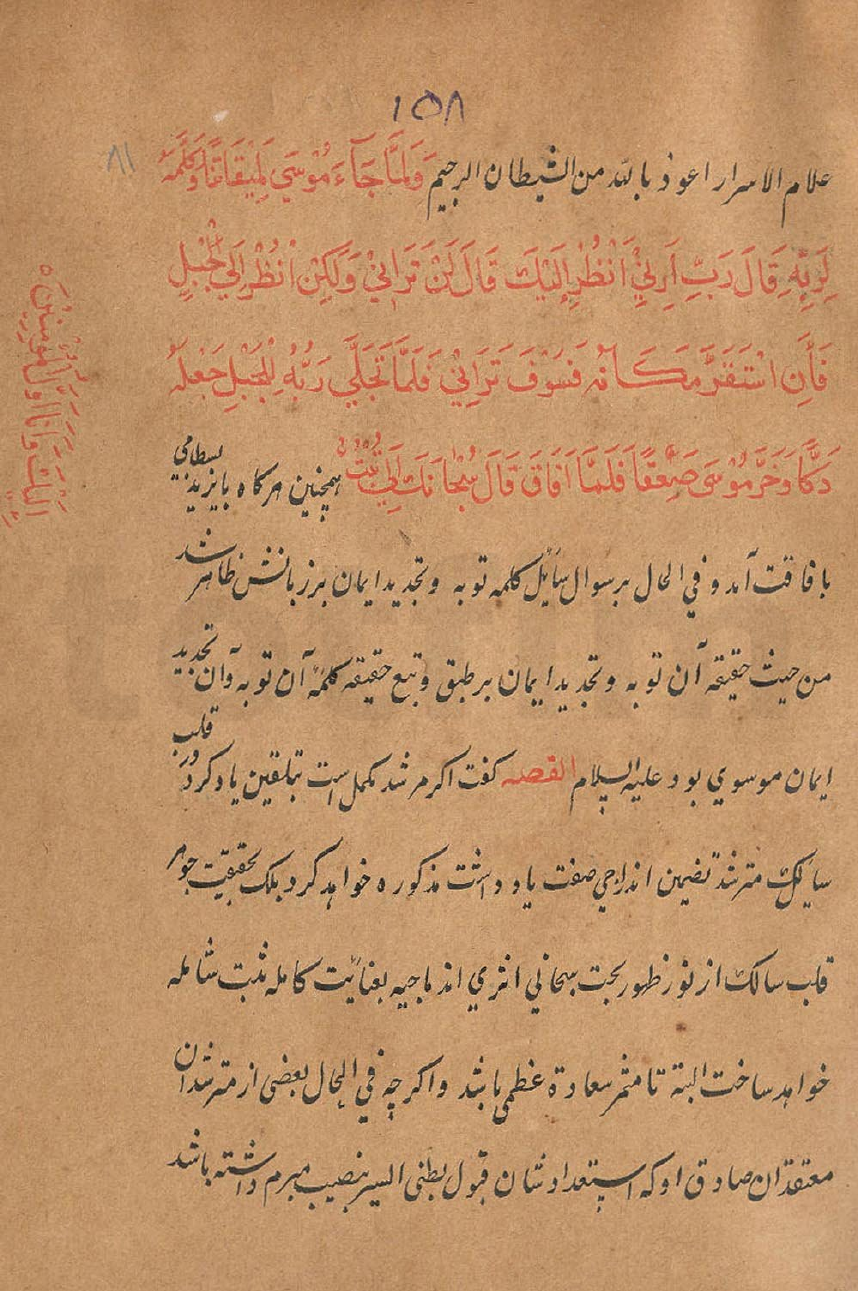 ۱۵۸
۸۱
علام الاسرار اعوذ بالله من الشیطان الرجیم وَلَمَّا جَآءَ مُوْسَي لِمِیْقَاتِنَا وَکَلَّمَهُ
لِرَبِّهِ قَالَ رَبِّ اَرِنِيْ اَنْظُرْ اِلَیْكَ قَالَ لَنْ تَرَانِيْ وَلٰکِنْ اُنْظُرْ اِلَي الْجَبَلِ
فَأِنِ اسْتَقَرَّ مَکَانَهُ فَسَوْفَ تَرَانِيْ فَلَمَّا تَجَلَّي رَبُّهُ لِلْجَبَلِ جَعَلَهُ
دَکًّا وَخَرَّ مُوْسَي صَعِقًا فَلَمَّا اَفَاقَ قَالَ سُبْحَانَكَ اِنِّي تُبْتُ همچنین هرکاه بایزید بسطامي
اِلَیْكَ وَاَنَا اَوَّلُ الْمُؤْمِنِیْنَ ه
بافاقت آمد و في الحال برسوال سایل کلمه توبه و تجدید ایمان برزبانش ظاهر شد
من حیث حقیقه آن توبه و تجدید ایمان برطبق و تبع حقیقه کلمه آن توبه و آن تجدید
ایمان موسوي بود علیه السلام القصه کفت اکر مرشد مکمل است بتلقین یاد کرد در قلب
سالك مترشد تضمین اندراجي صفت یاد داشت مذکوره خواهد کرد بلك بحقیقت جوهر
قلب سالك از نور ظهور بحت سبحاني اندماجیه بعنایت کامله مثبت شامله
خواهد ساخت البته تا مثمر سعادة عظمي باشد و اکرچه في الحال بعضی از مترشدان
معتقدان صادق او که استعدادشان قبول بطئی السیر بنصیب مبرم داشته باشد